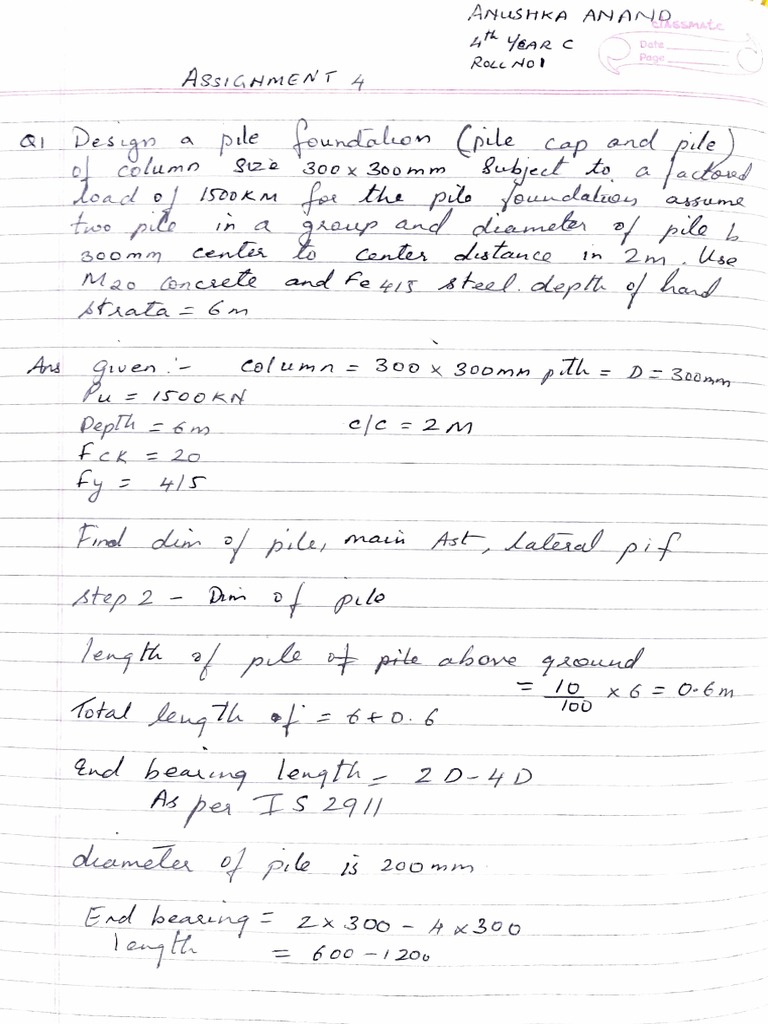 ANUSHKA ANAND
classmate
4th YEAR C
Date
Page
ROLL NO 1
ASSIGNMENT 4
Q1 Design a pile foundation (pile cap and pile)
of column size 300 x 300mm subject to a factored
load of 1500KM for the pile foundation assume
two pile in a group and diameter of pile is
300mm center to center distance in 2m. Use
M20 concrete and Fe 415 steel. depth of hard
strata = 6m
Ans given :- column = 300 x 300mm pith = D = 300mm
Pu = 1500KN
Depth = 6m c/c = 2M
Fck = 20
Fy = 415
Find dim of pile, main Ast, lateral pif
step 2 - Dim of pile
length of pile of pile above ground
= 10/100 x 6 = 0.6m
Total length of = 6+0.6
End bearing length = 2D-4D
As per IS 2911
diameter of pile is 200mm
End bearing = 2x300 - 4x300
length = 600-1200